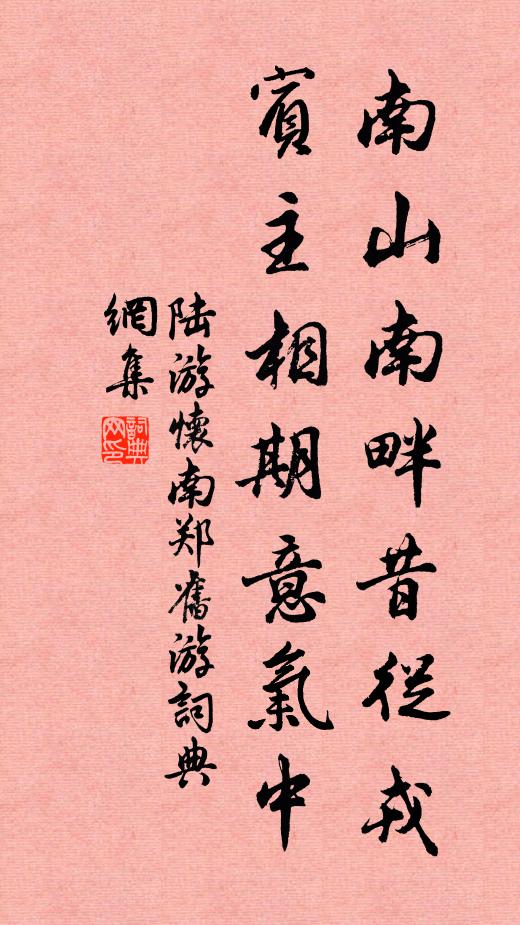 南山南畔昔從戎
賓主相期意氣中
陆游懷南郑舊游詞典
網集
詞典
网印